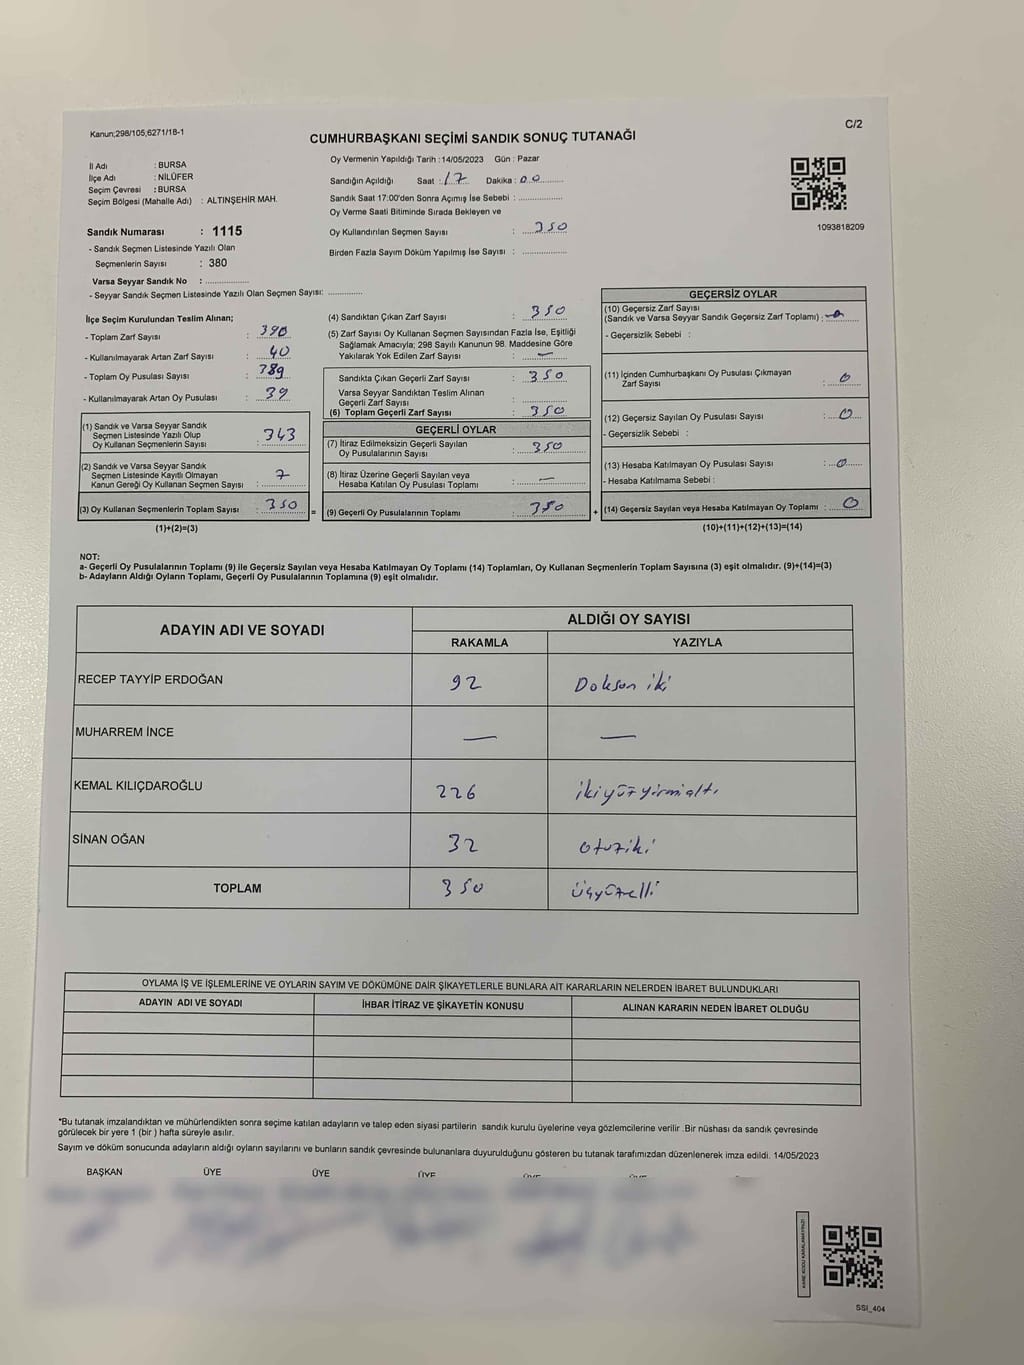 Kanun;298/105,6271/18-1
C/2
CUMHURBAŞKANI SEÇİMİ SANDIK SONUÇ TUTANAĞI
İl Adı : BURSA
İlçe Adı : NİLÜFER
Seçim Çevresi : BURSA
Seçim Bölgesi (Mahalle Adı) : ALTINŞEHİR MAH.
Oy Vermenin Yapıldığı Tarih :14/05/2023 Gün : Pazar
Sandığın Açıldığı Saat : 17 Dakika : 00
Sandık Saat 17:00'den Sonra Açımış İse Sebebi :
Oy Verme Saati Bitiminde Sırada Bekleyen ve
Oy Kullandırılan Seçmen Sayısı : 350
Birden Fazla Sayım Döküm Yapılmış İse Sayısı :
1093818209
Sandık Numarası : 1115
- Sandık Seçmen Listesinde Yazılı Olan
Seçmenlerin Sayısı : 380
Varsa Seyyar Sandık No :
- Seyyar Sandık Seçmen Listesinde Yazılı Olan Seçmen Sayısı:
İlçe Seçim Kurulundan Teslim Alınan;
- Toplam Zarf Sayısı : 390
- Kullanılmayarak Artan Zarf Sayısı : 40
- Toplam Oy Pusulası Sayısı : 389
- Kullanılmayarak Artan Oy Pusulası : 39
(1) Sandık ve Varsa Seyyar Sandık
Seçmen Listesinde Yazılı Olup
Oy Kullanan Seçmenlerin Sayısı : 343
(2) Sandık ve Varsa Seyyar Sandık
Seçmen Listesinde Kayıtlı Olmayan
Kanun Gereği Oy Kullanan Seçmen Sayısı : 7
(3) Oy Kullanan Seçmenlerin Toplam Sayısı : 350
(1)+(2)=(3)
=
(4) Sandıktan Çıkan Zarf Sayısı : 350
(5) Zarf Sayısı Oy Kullanan Seçmen Sayısından Fazla İse, Eşitliği
Sağlamak Amacıyla; 298 Sayılı Kanunun 98. Maddesine Göre
Yakılarak Yok Edilen Zarf Sayısı : —
Sandıkta Çıkan Geçerli Zarf Sayısı : 350
Varsa Seyyar Sandıktan Teslim Alınan
Geçerli Zarf Sayısı :
(6) Toplam Geçerli Zarf Sayısı : 350
GEÇERLİ OYLAR
(7) İtiraz Edilmeksizin Geçerli Sayılan
Oy Pusulalarının Sayısı : 350
(8) İtiraz Üzerine Geçerli Sayılan veya
Hesaba Katılan Oy Pusulası Toplamı : —
(9) Geçerli Oy Pusulalarının Toplamı : 350
+
GEÇERSİZ OYLAR
(10) Geçersiz Zarf Sayısı
(Sandık ve Varsa Seyyar Sandık Geçersiz Zarf Toplamı) :
- Geçersizlik Sebebi :
(11) İçinden Cumhurbaşkanı Oy Pusulası Çıkmayan
Zarf Sayısı : 0
(12) Geçersiz Sayılan Oy Pusulası Sayısı : 0
- Geçersizlik Sebebi :
(13) Hesaba Katılmayan Oy Pusulası Sayısı : 0
- Hesaba Katılmama Sebebi :
(14) Geçersiz Sayılan veya Hesaba Katılmayan Oy Toplamı : 0
(10)+(11)+(12)+(13)=(14)
NOT:
a- Geçerli Oy Pusulalarının Toplamı (9) ile Geçersiz Sayılan veya Hesaba Katılmayan Oy Toplamı (14) Toplamları, Oy Kullanan Seçmenlerin Toplam Sayısına (3) eşit olmalıdır. (9)+(14)=(3)
b- Adayların Aldığı Oyların Toplamı, Geçerli Oy Pusulalarının Toplamına (9) eşit olmalıdır.
ADAYIN ADI VE SOYADI
ALDIĞI OY SAYISI
RAKAMLA YAZIYLA
RECEP TAYYİP ERDOĞAN 92 Doksan iki
MUHARREM İNCE — —
KEMAL KILIÇDAROĞLU 226 ikiyüzyirmialtı
SİNAN OĞAN 32 otuziki
TOPLAM 350 üçyüzelli
OYLAMA İŞ VE İŞLEMLERİNE VE OYLARIN SAYIM VE DÖKÜMÜNE DAİR ŞİKAYETLERLE BUNLARA AİT KARARLARIN NELERDEN İBARET BULUNDUKLARI
ADAYIN ADI VE SOYADI İHBAR İTİRAZ VE ŞİKAYETİN KONUSU ALINAN KARARIN NEDEN İBARET OLDUĞU
*Bu tutanak imzalandıktan ve mühürlendikten sonra seçime katılan adayların ve talep eden siyasi partilerin sandık kurulu üyelerine veya gözlemcilerine verilir .Bir nüshası da sandık çevresinde
görülecek bir yere 1 (bir ) hafta süreyle asılır.
Sayım ve döküm sonucunda adayların aldığı oyların sayılarını ve bunların sandık çevresinde bulunanlara duyurulduğunu gösteren bu tutanak tarafımızdan düzenlenerek imza edildi. 14/05/2023
BAŞKAN ÜYE ÜYE ÜYE ÜYE ÜYE
KARE KODU KARALAMAYINIZ!
SSI_404